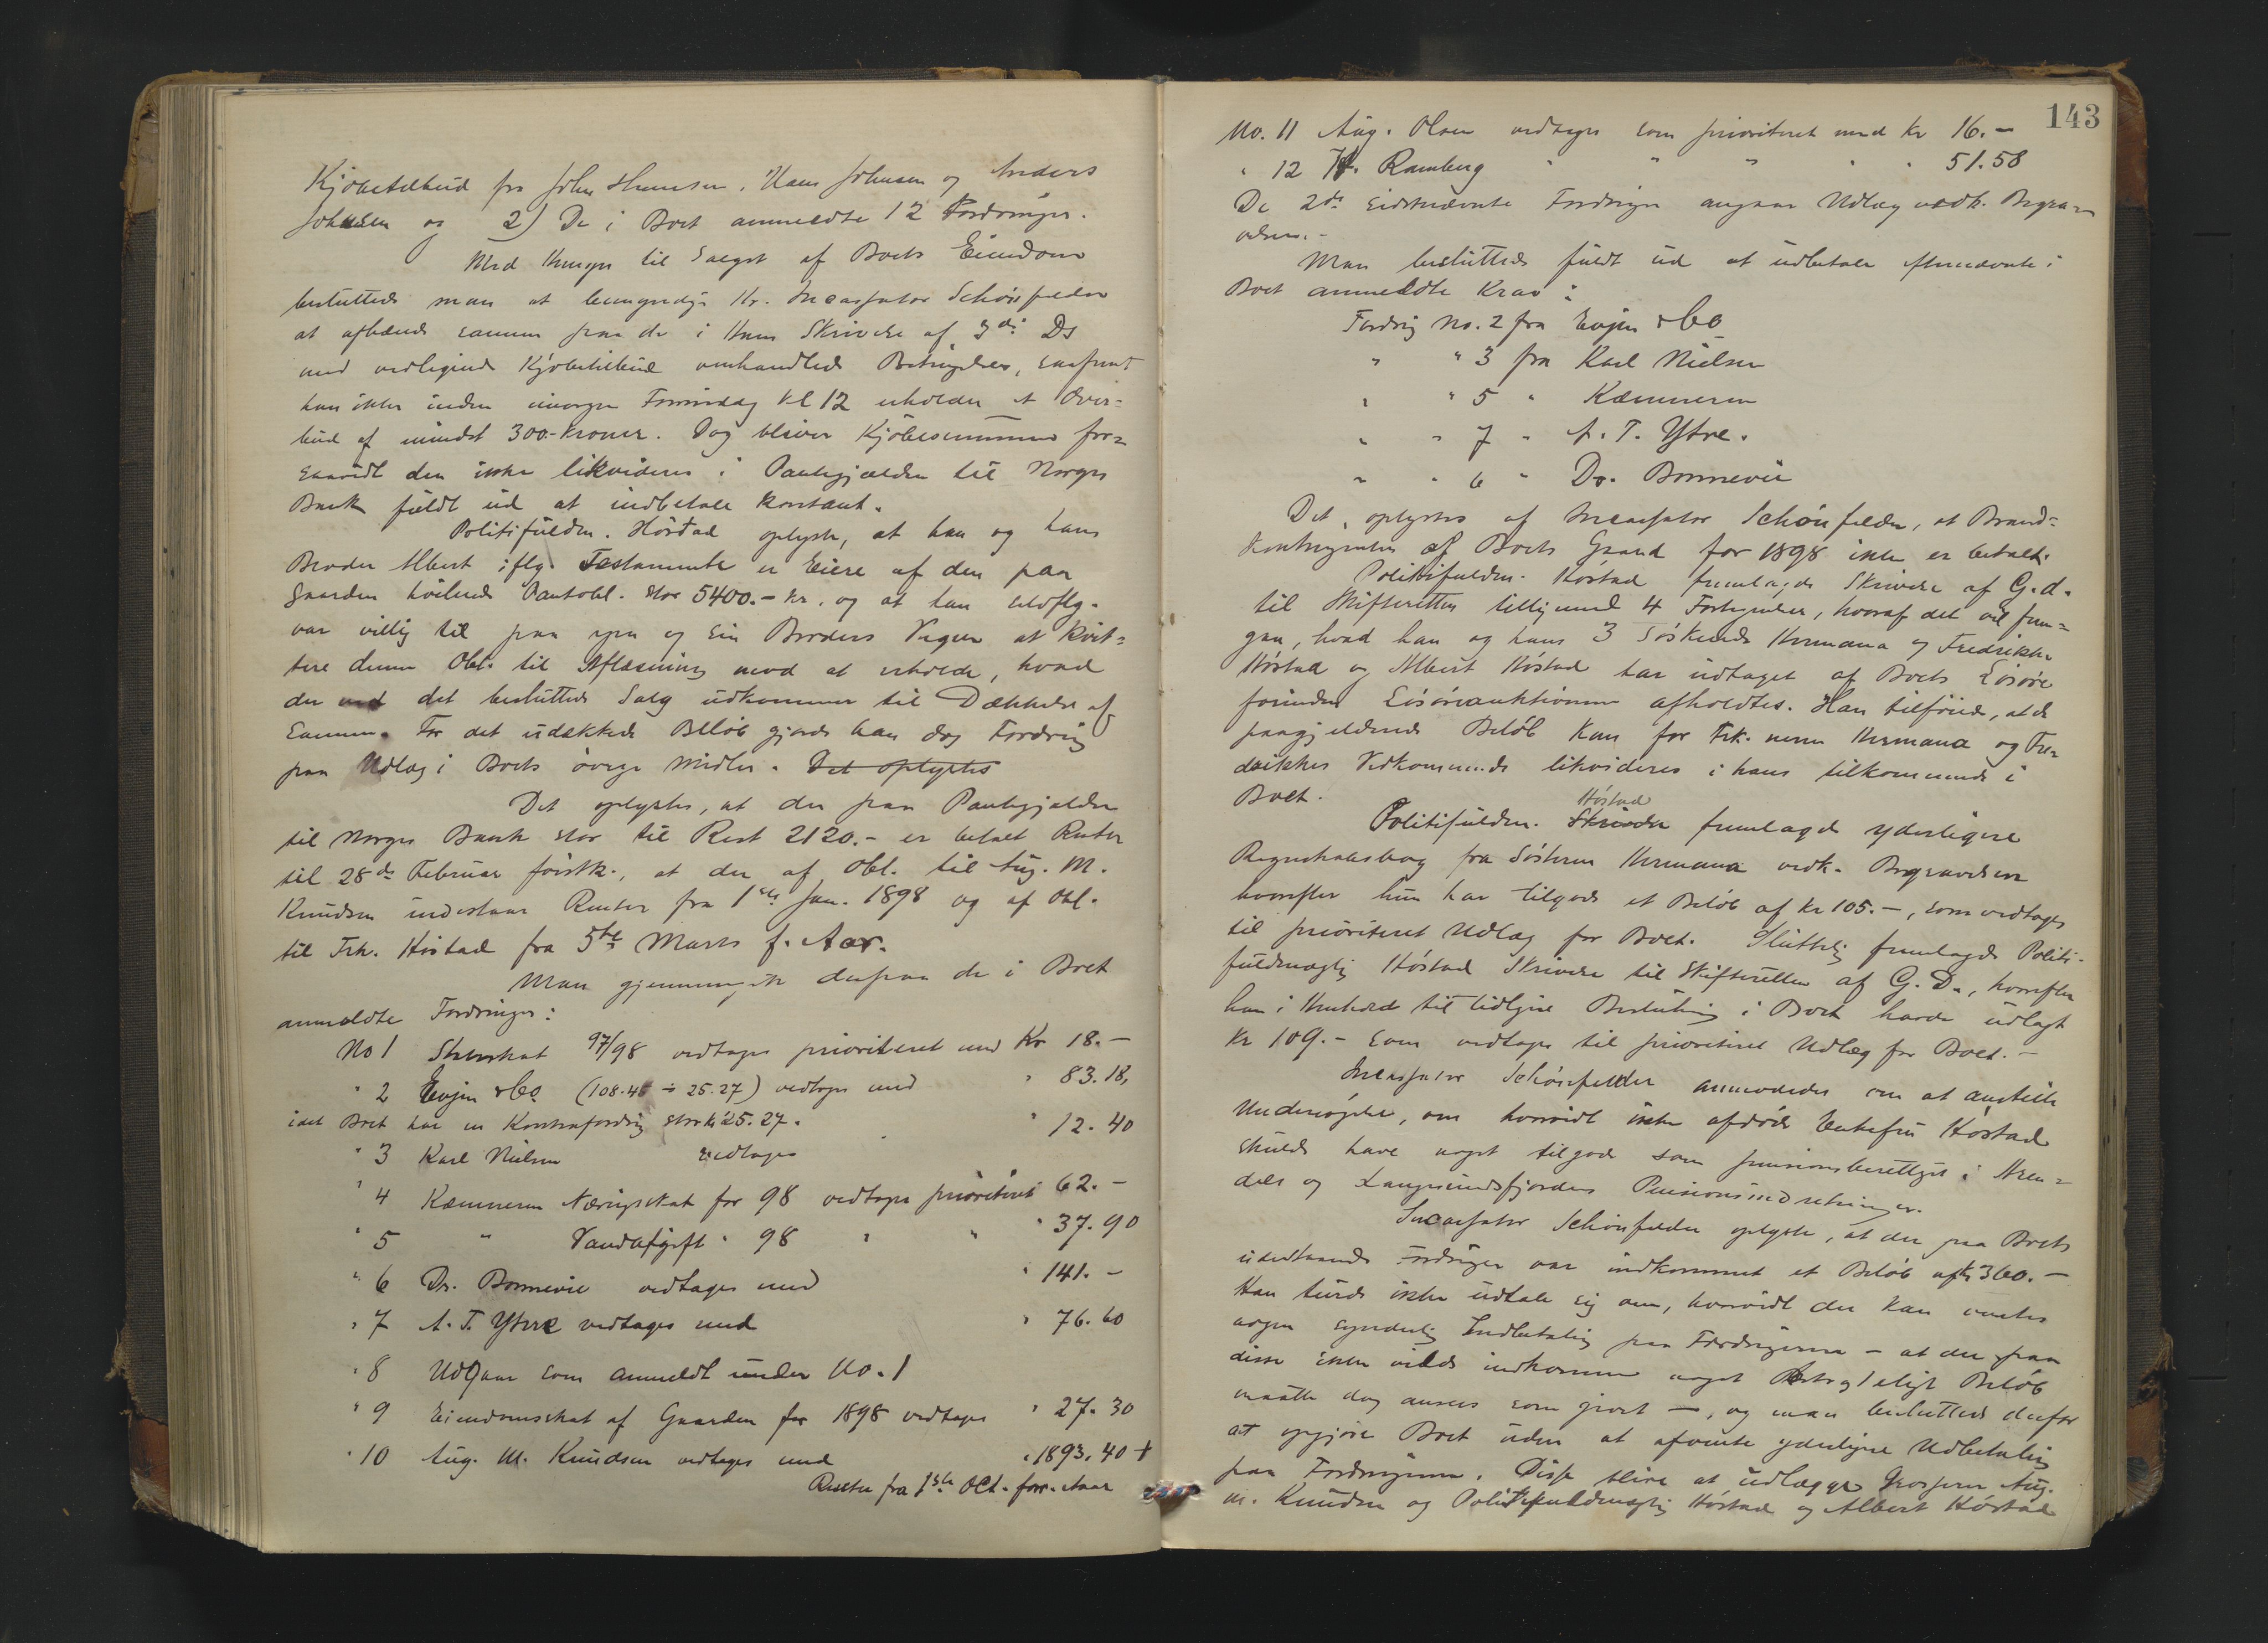 Kjøbetilbud fra John Hansen, Hans Johnsen og Anders
Johnsen og 2) De i Boet anmeldte 12 Fordringer.
Med Hensyn til Salget af Boets Eiendom
besluttede man at bemyndige Hr. Incassator Schönfelder
at afhænde samme paa de i Hans Skrivelse af 3die Ds
med vedliggende Kjøbetilbud omhandlede Betingelser, saafremt
han ikke inden imorgen Formiddag Kl 12 erholder et Over-
bud af mindst 300.- Kroner. Dog bliver Kjøbesummen for-
saavidt den ikke likvideres i Pantegjælden til Norges
Bank fuldt ud at indbetale kontant.
Politifuldm. Höstad oplyste, at han og hans
Broder Albert iflg. Testamente er Eiere af den paa
Gaarden hvilende Pantobl. stor 5400.- kr. og at han
var villig til paa egne og sin Broders Vegne at kvit-
tere denne Obl. til Aflæsning mod at erholde, hvad
der ved det besluttede Salg udkommer til Dækkelse af
Samme. For det udækkede Beløb gjorde han dog Fordring
paa Udlæg i Boets övrige Midler. Det oplystes
Det oplystes, at der paa Pantegjælden
til Norges Bank stor til Rest 2120.- er betalt Renter
til 28de Februar förstk., at der af Obl. til Aug. M.
Knudsen indestaar Renter fra 1ste Jan. 1898 og af Obl.
til Frk. Höstad fra 5te Marts f. Aar.
Man gjennemgik derpaa de i Boet
anmeldte Fordringer:
No 1 97/98 vedtages prioriteret med Kr 18.-
" 2 Evjen & Co. (108.45 ÷ 25.27) vedtages med " 83.18,
idet Boet har en Kontrafordring stor kr 25.27.
" 3 Karl Nielsen vedtages " 12.40
" 4 Kæmneren Næringsskat for 98 vedtages prioriteret 62.-
" 5 " Vandafgift " 98 " " " 37.90
" 6 Dr. Bonnevie vedtages med " 141.-
" 7 A. T. Ytre vedtages med " 76.60
" 8 Udgaar som anmeldt under No. 1
" 9 Eiendomsskat af Gaarden for 1898 vedtages " 27.30
" 10 Aug. M. Knudsen vedtages med " 1893.40 +
Renter fra 1ste Oct. forr. Aar
143
No. 11 Aug. Olsen vedtages som prioriteret med Kr 16.-
" 12 Ramberg " " " " " 51.58
De 2de sidstnævnte Fordringer angaar Udlæg vedk. Begra-
velsen.-
Man besluttede fuldt ud at udbetale efternævnte i
Boet anmeldte Krav:
Fordring No. 2 fra Evjen & Co
" " 3 fra Karl Nielsen
" " 5 " Kæmneren
" " 7 " A. T. Ytre.
" " 6 " Dr. Bonnevie
Det oplystes af Incassator Schönfelder, at Brand-
kontingenten af Boets Gaard for 1898 ikke er betalt.
Politifuldm. Höstad fremlagde Skrivelse af G.d.
til Skifteretten tilligemed 4 Fortegnelser, hvoraf det vil frem-
gaa, hvad han og hans 3 Söskende Hermana og Fredrikke
Höstad og Albert Höstad har udtaget af Boets Lösöre
forinden Lösöreauktionen afholdtes. Han tilföiede, at de
paagjeldende Beløb kan for Frk. nerne Hermana og Fre-
drikkes Vedkommende likvideres i hans tilkommende i
Boet.
Höstad
Politifuldm. fremlagde yderligere
Regnskabsbog fra Søsteren Hermana vedk. Begravelsen
hvorefter hun har tilgode et Beløb af Kr 105.-, som vedtages
til prioriteret Udlæg for Boet. Sluttelig fremlagde Politi-
fuldmægtig Höstad Skrivelse til Skifteretten af G. D., hvorefter
han i Henhold til tidligere Beslutning i Boet havde udlagt
Kr 109.- som vedtages til prioriteret Udlæg for Boet.-
Incassator Schönfelder anmodedes om at anstille
Undersøgelse, om hvorvidt ikke afdøde Enkefru Höstad
skulde have noget tilgode som pensionsberettiget i Aren-
dals og Langesundsfjordens Pensionsindretninger.
Incassator Schönfelder oplyste, at der paa Boets
udestaaende Fordringer var indkommet et Beløb af kr 360.-
Han turde ikke udtale sig om, hvorvidt der kan ventes
nogen synderlig Indbetaling paa Fordringerne - at der paa
disse ikke vilde indkomme noget Beløb
maatte dog ansees som givet -, og man besluttede derfor
at opgjøre Boet uden at afvente yderligere Udbetaling
paa Fordringerne. Disse blive at udlægge Grosserer Aug.
M. Knudsen og Politifuldmægtig Höstad og Albert Höstad